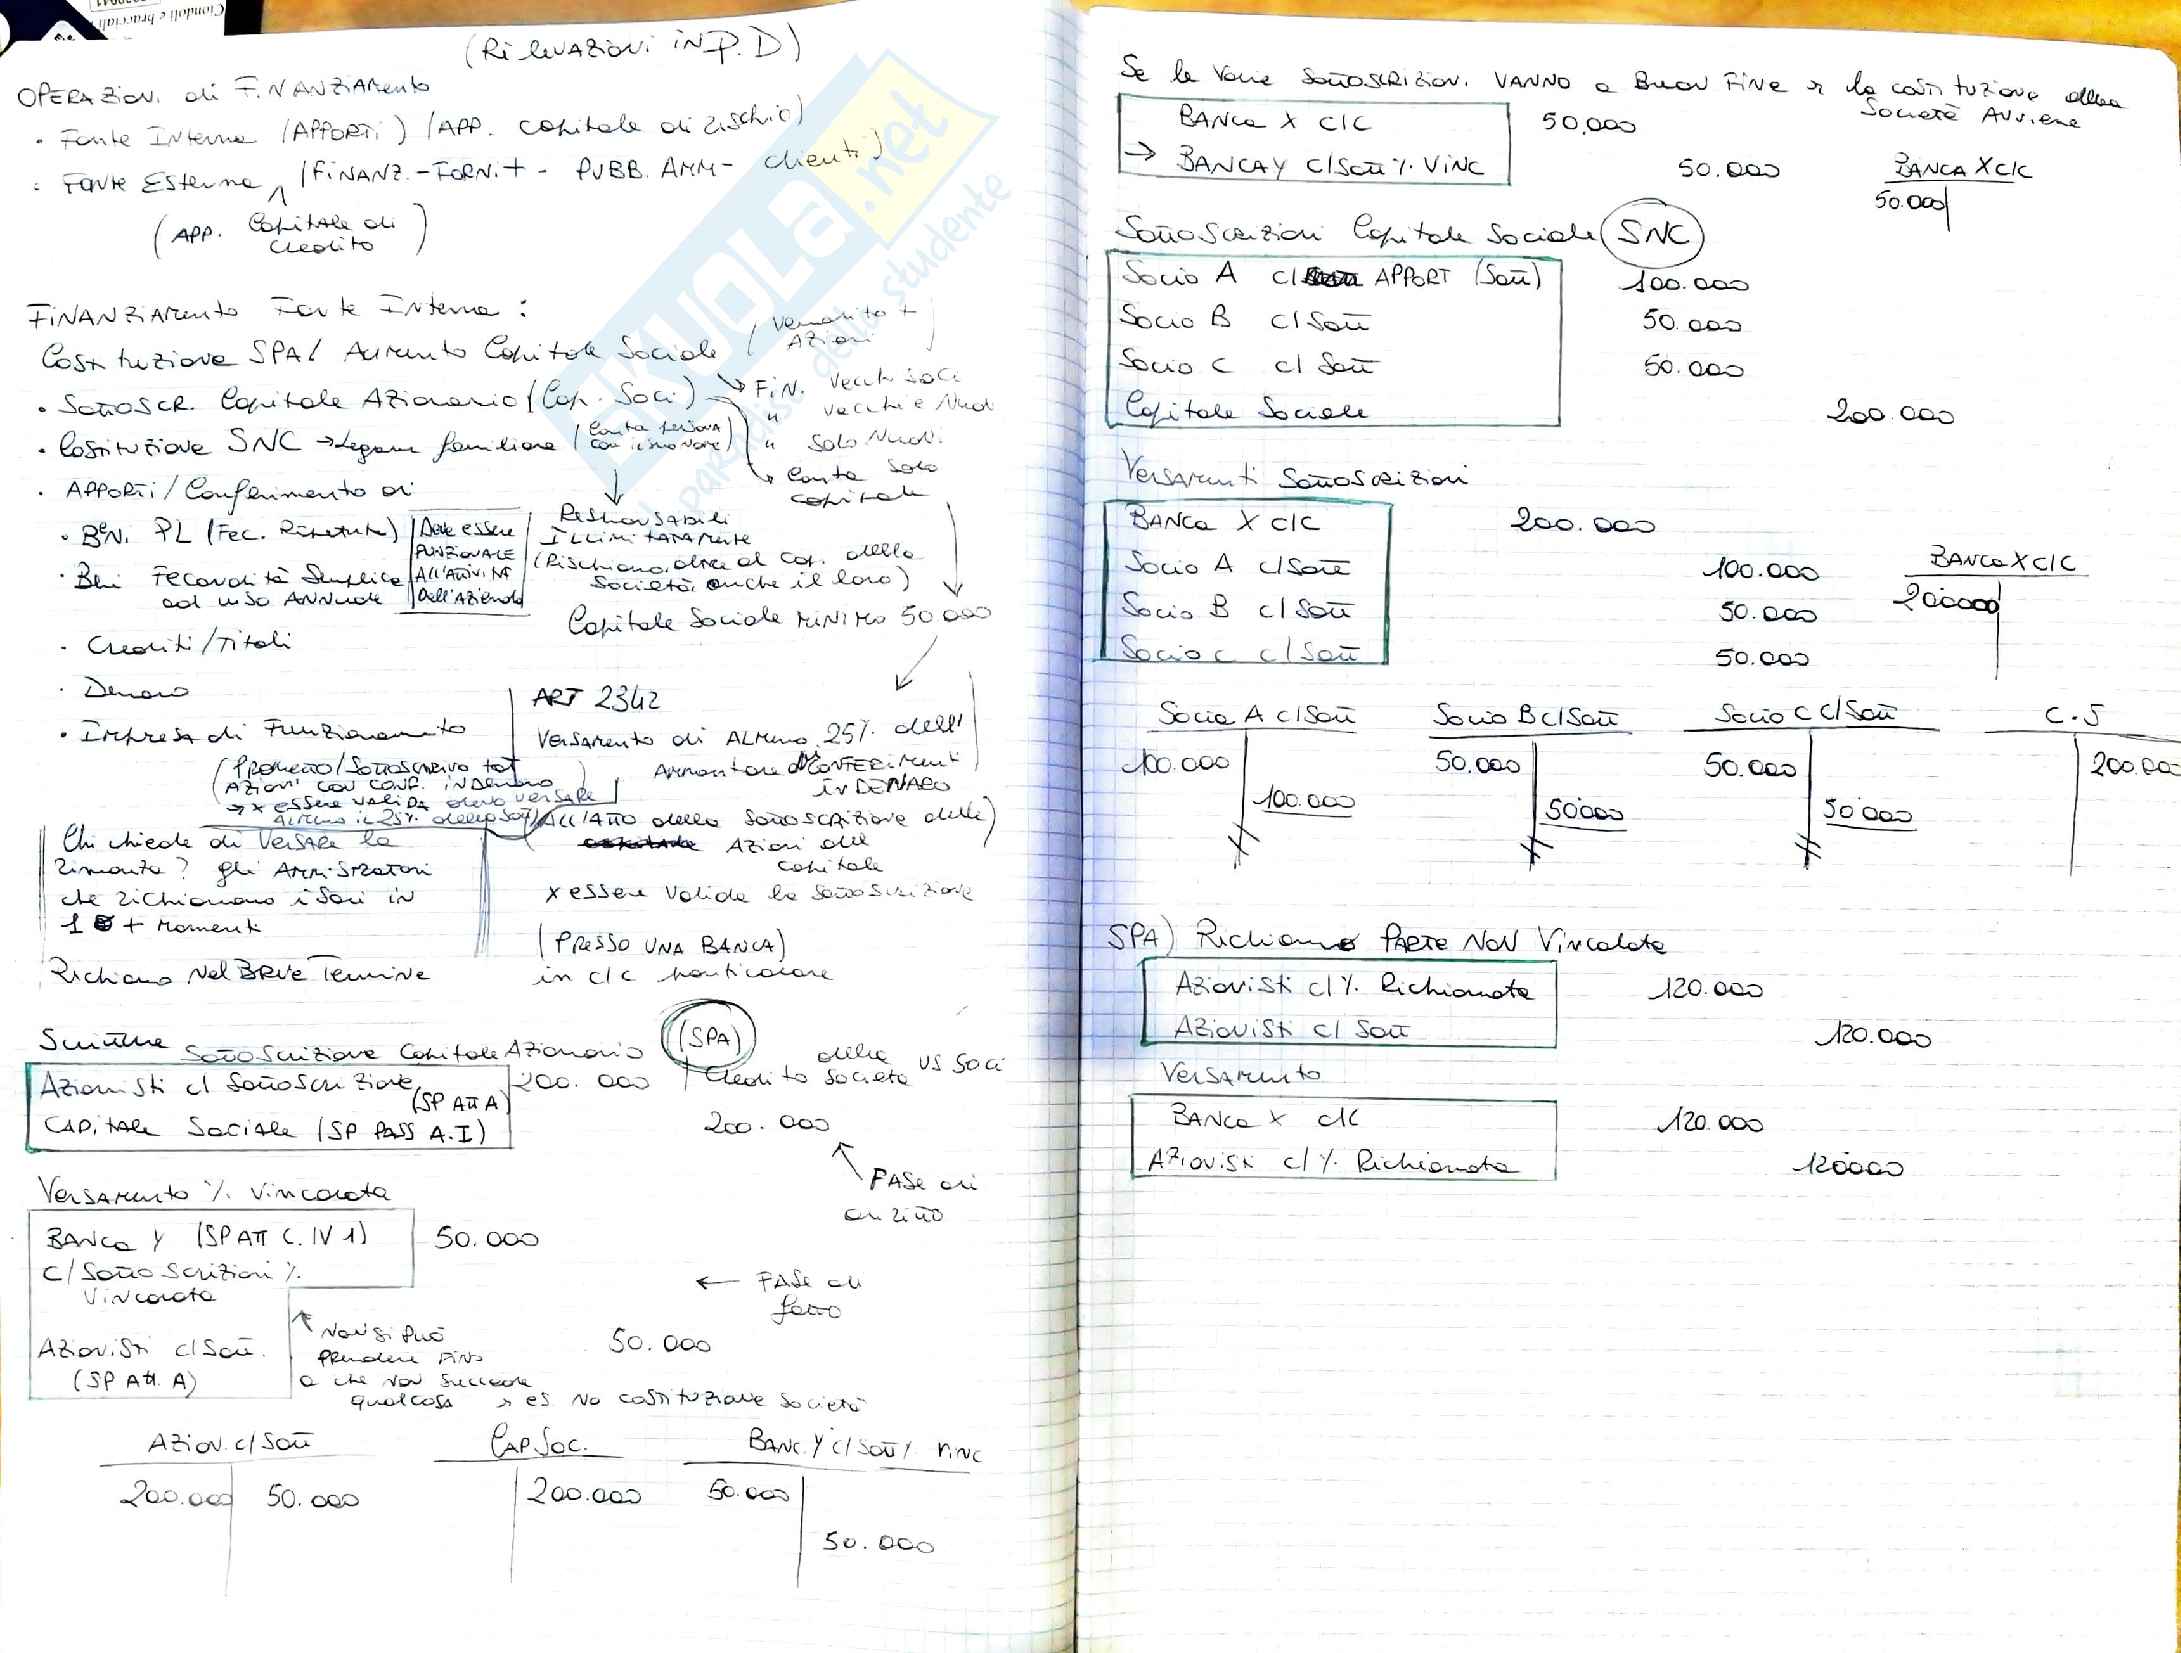 Ciondoli e bracciali
(Rilevazioni in P.D)
OPERAZIONI di FINANZIAMENTO
· Fonte Interna (APPORTI) (APP. capitale di rischio)
· Fonte Esterna (FINANZ.-FORNIT - PUBB. AMM- clienti)
(APP. Capitale di credito)
FINANZIAMENTO Fonte Interna:
Costituzione SPA/ Aumento Capitale Sociale
· SottoSCR. Capitale Azionario (Cap. Soci) → FIN. Vecchi soci
" Vecchi e Nuovi
· Costituzione SNC → Legame familiare (Conta persona con il suo nome)
" Solo Nuovi
→ Conta solo capitale
· APPORTI/Conferimento di
· Beni PL (Fec. Ripetuta)
· Beni Fecondità Semplice ad uso ANNUALE
Deve essere FUNZIONALE All'Attività Dell'Azienda
Responsabili ILLIMITATAMENTE
(Rischiano, oltre al Cap. della Società, anche il loro)
Capitale Sociale MINIMO 50 000
· Crediti/Titoli
· Denaro
· Impresa di Funzionamento
ART 2342
Versamento di ALMENO 25% dell'
Ammontare di CONFERIMENTI
in DENARO
(PROMETTO/SOTTOSCRIVO tot
AZIONI CON CONF. in Denaro
→ x essere VALIDA devo versare
Almeno il 25% della Sott)
(All'Atto della sottoscrizione delle)
Azioni del
capitale
x essere Valida la Sottoscrizione
(PRESSO UNA BANCA)
in c/c particolare
Chi chiede di Versare la
rimanente? gli Amministratori
che richiamano i soci in
1 o + momenti
Richiamo nel BREVE Termine
Scritture Sottoscrizione Capitale Azionario (SPA)
Azionisti c/ Sottoscrizione (SP Att A) 200.000 Credito della Società VS Soci
CAPITALE Sociale (SP PASS A.I) 200.000
FASE di diritto
Versamento % Vincolata
BANCA Y (SP ATT C. IV 1) 50.000
c/Sottoscrizioni %
Vincolata
← FASE di fatto
Azionisti c/Sott. 50.000
(SP Att. A)
Non si può
prendere fino
a che non succede
qualcosa es no costituzione società
Azion. c/Sott Cap Soc. Banc. Y c/Sott % vinc
200.000 50.000 200.000 50.000
50.000
Se le varie Sottoscrizioni VANNO a Buon Fine e la costituzione della Società Avviene
BANCA X c/c 50.000
→ BANCA Y c/Sott % VINC 50.000
BANCA X c/c
50.000
Sottoscrizioni Capitale Sociale (SNC)
Socio A c/ APPORT (Sott) 100.000
Socio B c/ Sott 50.000
Socio C c/ Sott 50.000
Capitale Sociale 200.000
Versamenti Sottoscrizioni
BANCA X c/c 200.000
Socio A c/Sott 100.000
Socio B c/Sott 50.000
Socio C c/Sott 50.000
BANCA X c/c
200000
Socio A c/Sott Socio B c/Sott Socio C c/Sott C.S
100.000 50.000 50.000 200.000
100.000 50000 50000
SPA) Richiamo PARTE NON Vincolata
Azionisti c/ % Richiamata 120.000
Azionisti c/ Sott 120.000
Versamento
BANCA X c/c 120.000
Azionisti c/ % Richiamata 120000